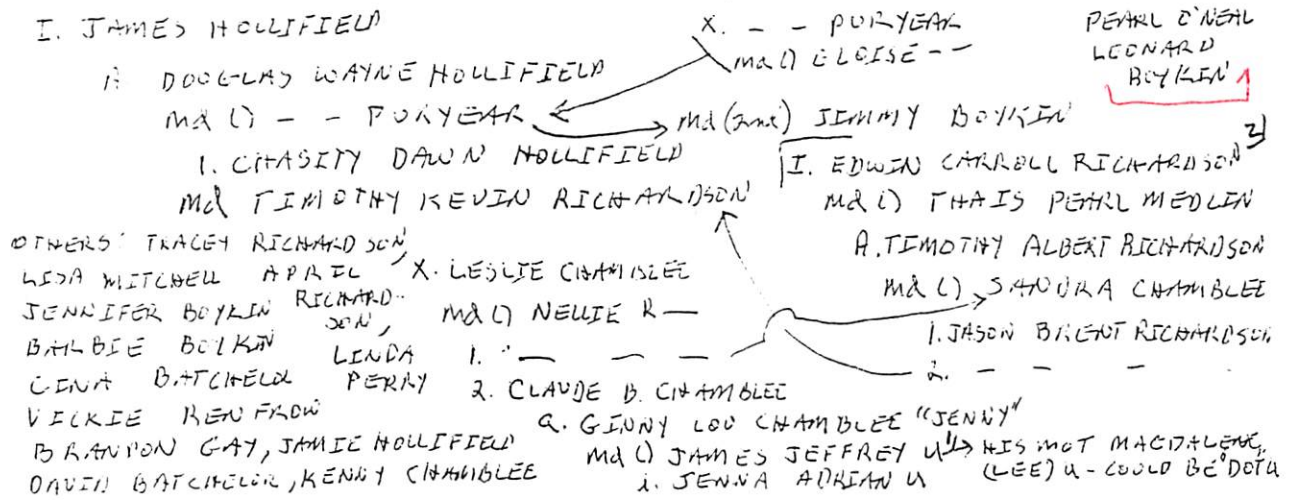 I. JAMES HOLLIFIELD
A DOUGLAS WAYNE HOLLIFIELD
md () - - PURYEAR
1. CHASITY DAWN HOLLIFIELD
md TIMOTHY KEVIN RICHARDSON
X. - - PURYEAR
md () ELOISE - -
md (2nd) JIMMY BOYKIN
PEARL O'NEAL
LEONARD
BOYKIN
I. EDWIN CARROLL RICHARDSON 3)
md () THAIS PEARL MEDLIN
A. TIMOTHY ALBERT RICHARDSON
md () SANDRA CHAMBLEE
1. JASON BRENT RICHARDSON
2. - - -
OTHERS: TRACEY RICHARDSON,
LISA MITCHELL APRIL
JENNIFER BOYKIN RICHARD-
SON,
BARBIE BOYKIN LINDA
BATCHELOR PERRY
VICKIE RENFROW
BRANDON GAY, JAMIE HOLLIFIELD
DAVID BATCHELOR, KENNY CHAMBLEE
X. LESLIE CHAMBLEE
md () NELLIE R —
1. — — —
2. CLAUDE B. CHAMBLEE
a. GINNY LOU CHAMBLEE "JENNY"
md () JAMES JEFFREY U HIS MOT MAGDALENE
(LEE) U - COULD BE
i. JENNA ADRIAN U